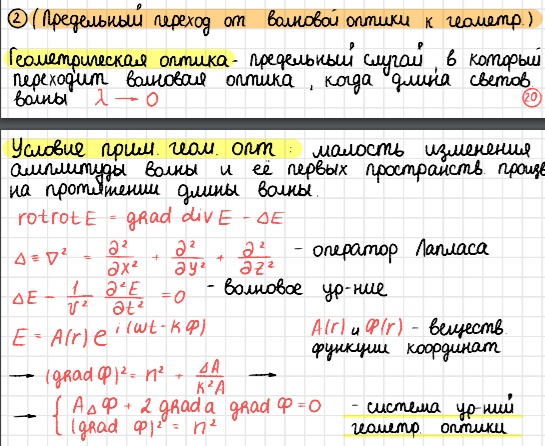 ② (Предельный переход от волновой оптики к геометр.)
Геометрическая оптика - предельный случай, в который
переходит волновая оптика, когда длина светов.
волны λ → 0
20
Условие прим. геом. опт : малость изменения
амплитуды волны и её первых пространств. произв
на протяжении длины волны.
rotrotE = grad divE - ΔE
Δ ≡ ∇² = ∂²/∂x² + ∂²/∂y² + ∂²/∂z² - оператор Лапласа
ΔE - 1/v² ∂²E/∂t² = 0 - волновое ур-ние
E = A(r) e^{i(ωt - kФ)} A(r) и Ф(r) - веществ.
функции координат
→ (grad Ф)² = n² + ΔA/k²A →
→ { AΔФ + 2 grad a grad Ф = 0 - система ур-ний
(grad Ф)² = n² геометр. оптики